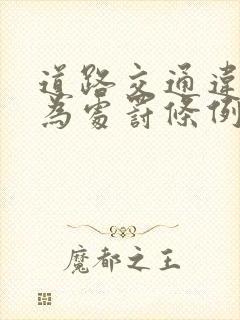 道路交通違
為處罰條例
魔都之王